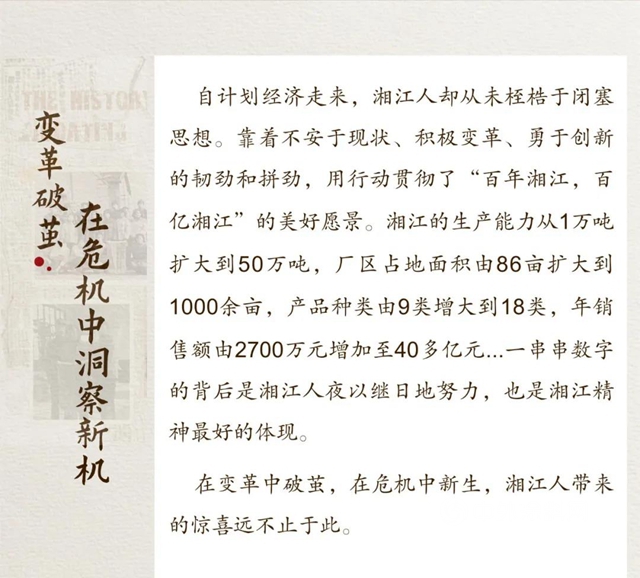 变革破茧
在危机中洞察新机
THE HISTORY
自计划经济走来，湘江人却从未桎梏于闭塞
思想。靠着不安于现状、积极变革、勇于创新
的韧劲和拼劲，用行动贯彻了“百年湘江，百
亿湘江”的美好愿景。湘江的生产能力从1万吨
扩大到50万吨，厂区占地面积由86亩扩大到
1000余亩，产品种类由9类增大到18类，年销
售额由2700万元增加至40多亿元...一串串数字
的背后是湘江人夜以继日地努力，也是湘江精
神最好的体现。
在变革中破茧，在危机中新生，湘江人带来
的惊喜远不止于此。